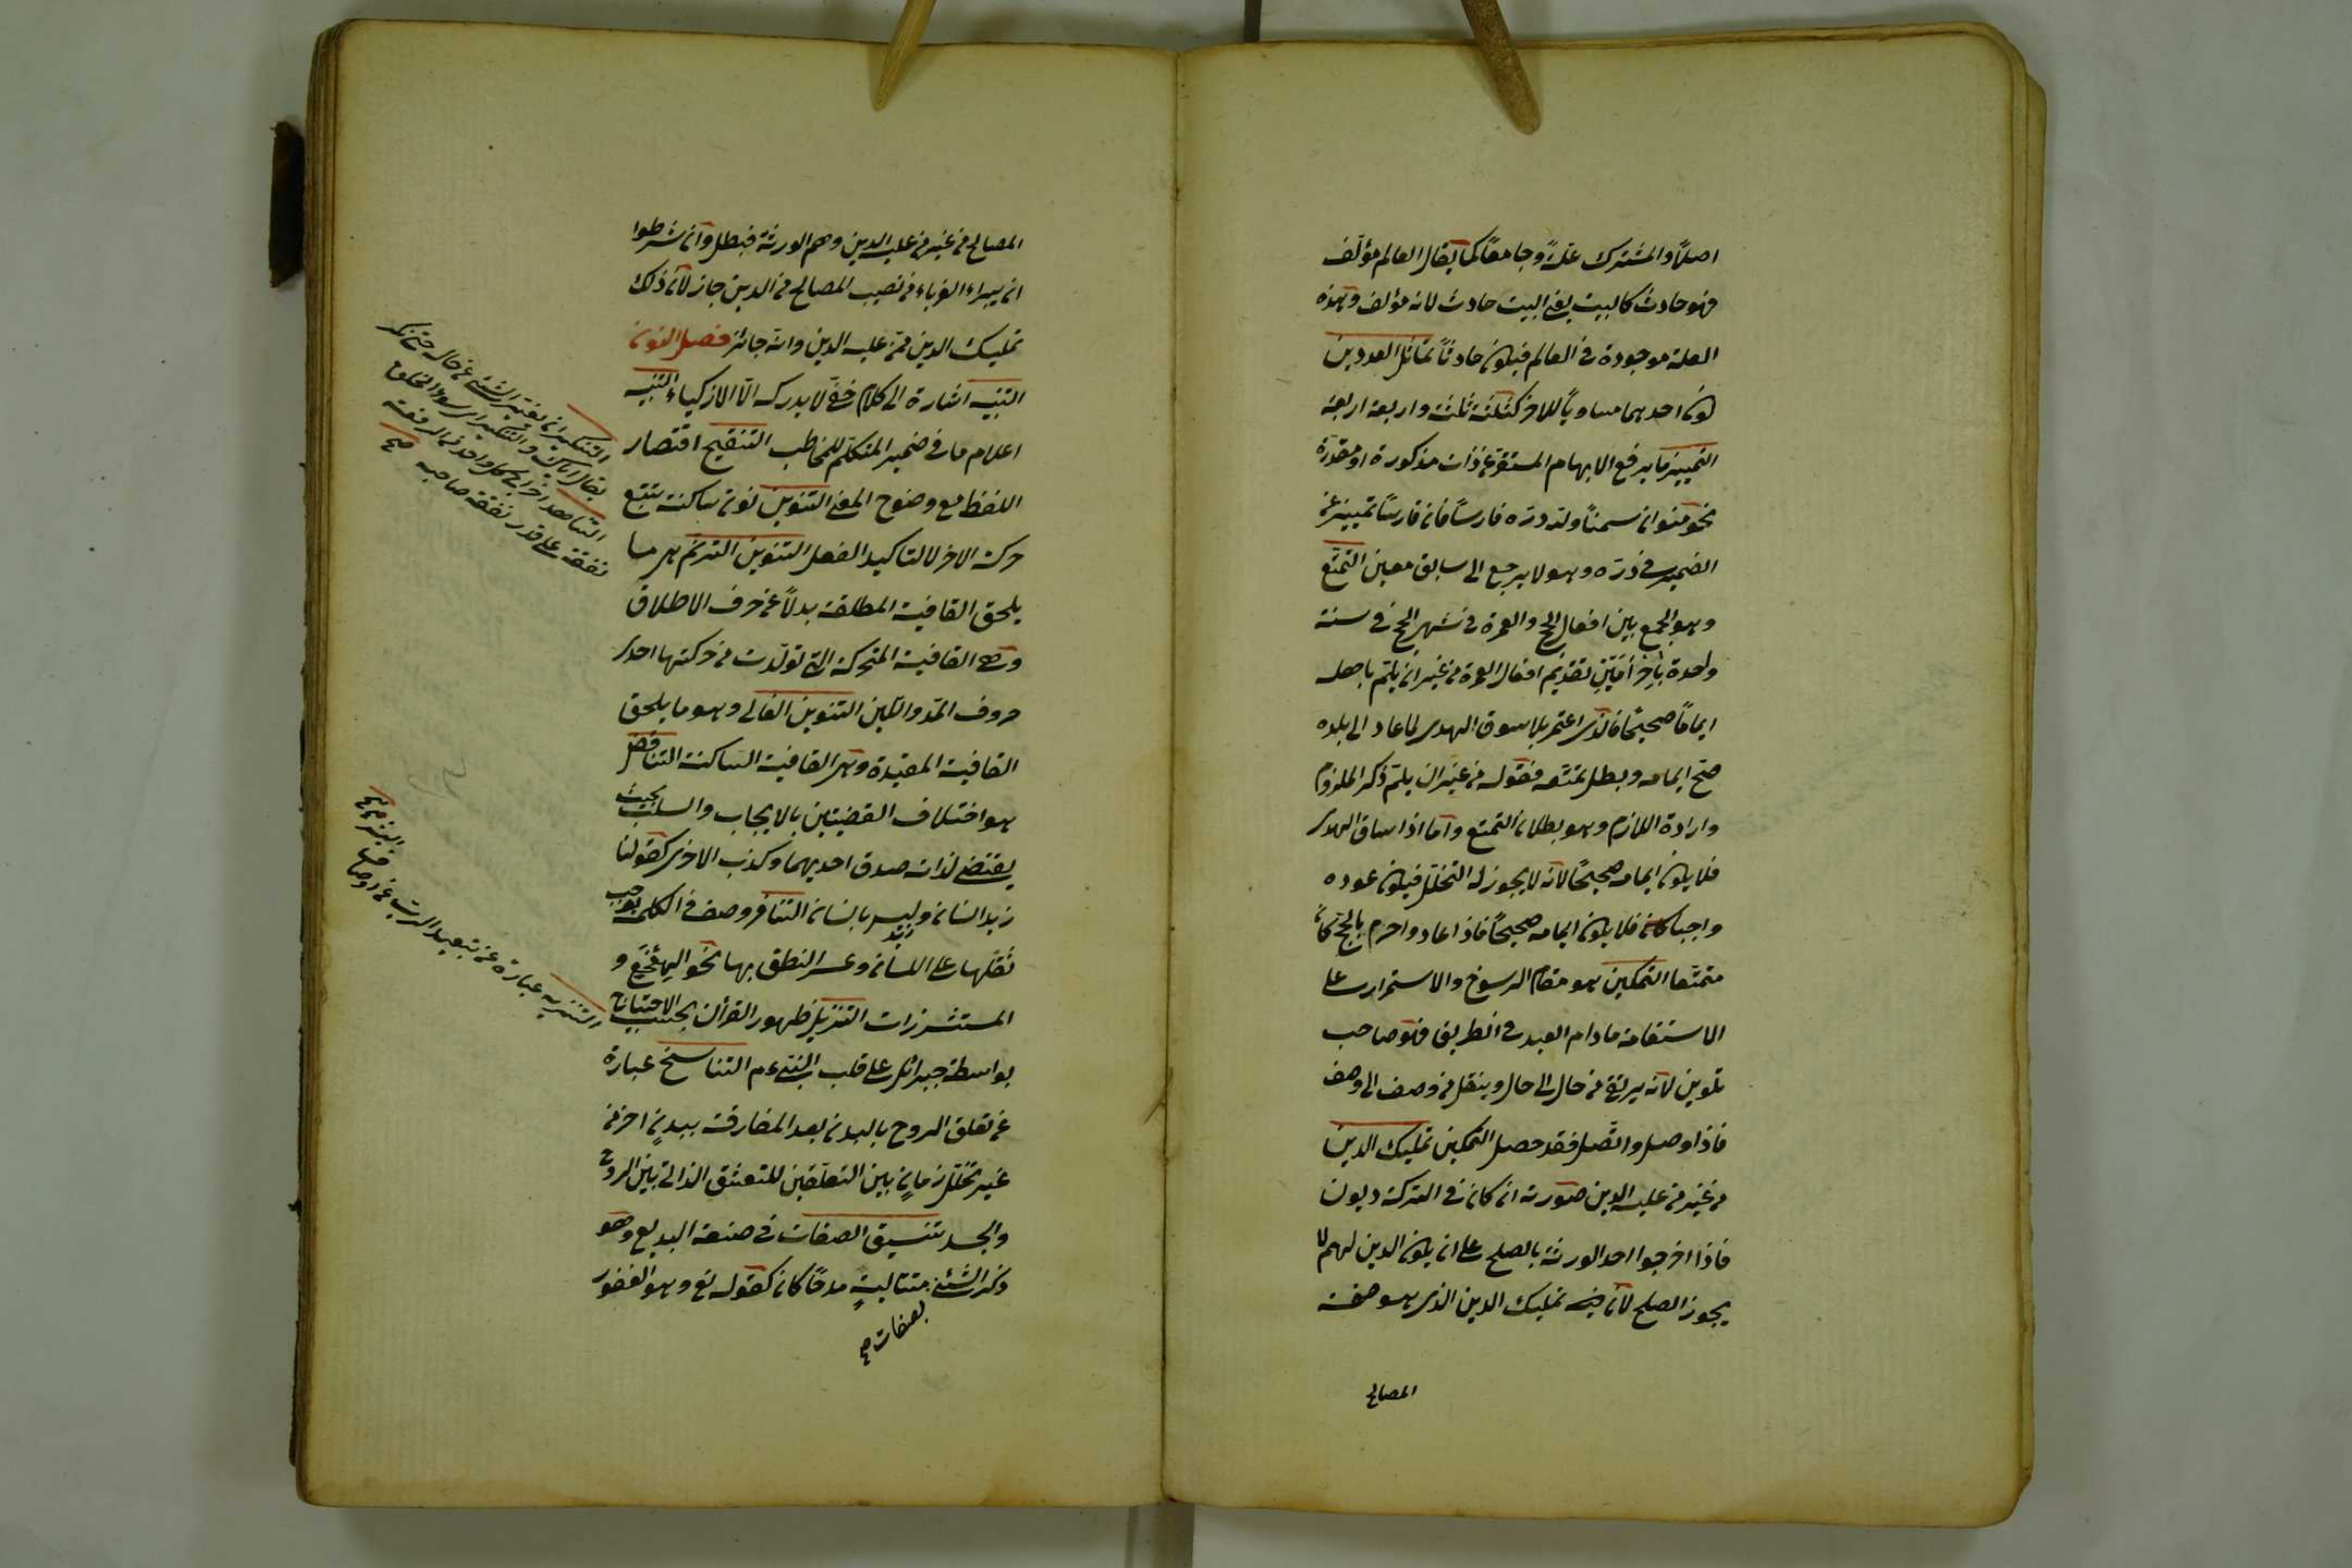 اصلاً والمشترك علّةً وجامعاً كما يقال العالم مؤلّف
فهو حادث كالبيت يعني البيت حادث لانه مؤلف وهذه
العلة موجودة في العالم فيكون حادثاً تماثل العددين
كون احدهما مساوياً للاخر كثلثة ثلثة واربعة اربعة
التمييز ما يرفع الابهام المستقر عن ذات مذكورة او مقدرة
نحو منوان سمناً ولله درّه فارساً فان فارساً تمييز عن
الضمير في درّه وهو لا يرجع الى سابق معين التمتع
وهو الجمع بين افعال الحج والعمرة في اشهر الحج في سنة
واحدة باحرامين بتقديم افعال العمرة من غير ان يلمّ باهله
الماماً صحيحاً فالذي اعتمر بلا سوق الهدى لما عاد الى بلده
صحّ المامه وبطل تمتعه فقوله من غير ان يلمّ ذكر الملزوم
وارادة اللازم وهو بطلان التمتع واما اذا ساق الهدى
فلا يكون المامه صحيحاً لانه لا يجوز له التحلّل فيكون عوده
واجبا فلا يكون المامه صحيحاً فاذا عاد واحرم بالحج كان
متمتعا التمكين هو مقام الرسوخ والاستقرار على
الاستقامة مادام العبد في الطريق فهو صاحب
تلوين لانه يرتقي من حال الى حال وينتقل من وصف الى وصف
فاذا وصل واتّصل فقد حصل التمكين تمليك الدين
من غير من عليه الدين صورته ان كان في التركة ديون
فاذا اخرجوا احد الورثة بالصلح على ان يكون الدين لهم لا
يجوز الصلح لان فيه تمليك الدين الذي هو حصة
المصالح
المصالح من غير من عليه الدين وهم الورثة فبطل وان شرطوا
ان يبراء الغرماء من نصيب المصالح من الدين جاز لان ذلك
تمليك الدين ممن عليه الدين وانه جائز فصل النون
التنبيه اشارة الى كلام خفي لا يدركه الّا الاذكياء التنبيه
اعلام ما في ضمير المتكلم للمخاطب التنقيح اقتصار
اللفظ مع وضوح المعنى التنوين نون ساكنة يتبع
حركة الاخر لا لتاكيد الفعل التنوين الترنم هي ما
يلحق القافية المطلقة بدلاً عن حرف الاطلاق
وهي القافية المتحركة التي تولّدت من حركتها احدى
حروف المدّ واللّين التنوين الغالى وهو ما يلحق
القافية المقيّدة وهي القافية الساكنة التناقض
هو اختلاف القضيتين بالايجاب والسلب بحيث
يقتضي لذاته صدق احديهما وكذب الاخرى كقولنا
زيد انسان وليس زيد بانسان التنافر وصف في الكلمة يوجب
ثقلها على اللسان وعسر النطق بها نحو الهعخع و
المستشزرات التنزيل ظهور القرآن بحسب الاحتياج
بواسطة جبرائل على قلب النبيّ عم التناسخ عبارة
عن تعلق الروح بالبدن بعد المفارقة ببدنٍ اخر من
غير تخلّل زمانٍ بين التعلّقين للتعشق الذاتى بين الروح
والجسد تنسيق الصفات في صنعة البديع وهو
ذكر الشئ بصفات صح متتاليةٍ مدحًا كان كقوله تع وهو الغفور
التناهد اخراج كل واحد من الرفقة
نفقة على قدر نفقة صاحبه صح
التنزيه عبارة عن تبعيد الرب عن اوصاف
البشر صح